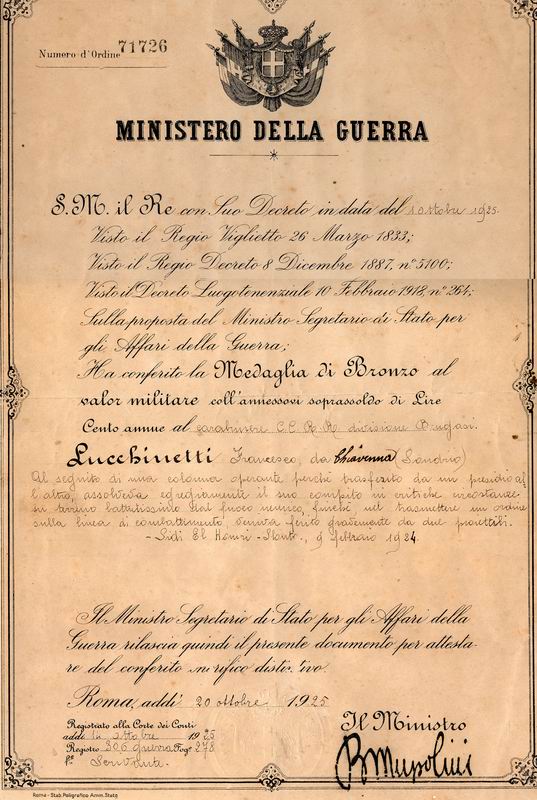 Numero d'Ordine 71726
MINISTERO DELLA GUERRA
S. M. il Re con Suo Decreto in data del 1 ottobre 1925.
Visto il Regio Viglietto 26 Marzo 1833;
Visto il Regio Decreto 8 Dicembre 1887, n° 5100;
Visto il Decreto Luogotenenziale 10 Febbraio 1918, n° 264;
Sulla proposta del Ministro Segretario di Stato per
gli Affari della Guerra;
Ha conferito la Medaglia di Bronzo al
valor militare coll'annessovi soprassoldo di Lire
Cento annue al carabiniere CC. RR. divisione
Lucchinetti Francesco, da Chiavenna (Sondrio)
Al seguito di una colonna operante perchè trasferito da un presidio al
l'altro, assolveva egregiamente il suo compito in critiche circostanze
su terreno battutissimo dal fuoco nemico, finchè nel trasmettere un ordine
sulla linea di combattimento, veniva ferito gravemente da due proiettili.
- Sidi El 9 febbraio 1924.
Il Ministro Segretario di Stato per gli Affari della
Guerra rilascia quindi il presente documento per attesta-
re del conferito onorifico distintivo.
Roma, addì 20 ottobre 1925
Registrato alla Corte dei Conti
addì 14 ottobre 1925
Registro 326 Guerra Fog° 278
Il Ministro
B Mussolini
Roma - Stab. Poligrafico Amm. Stato